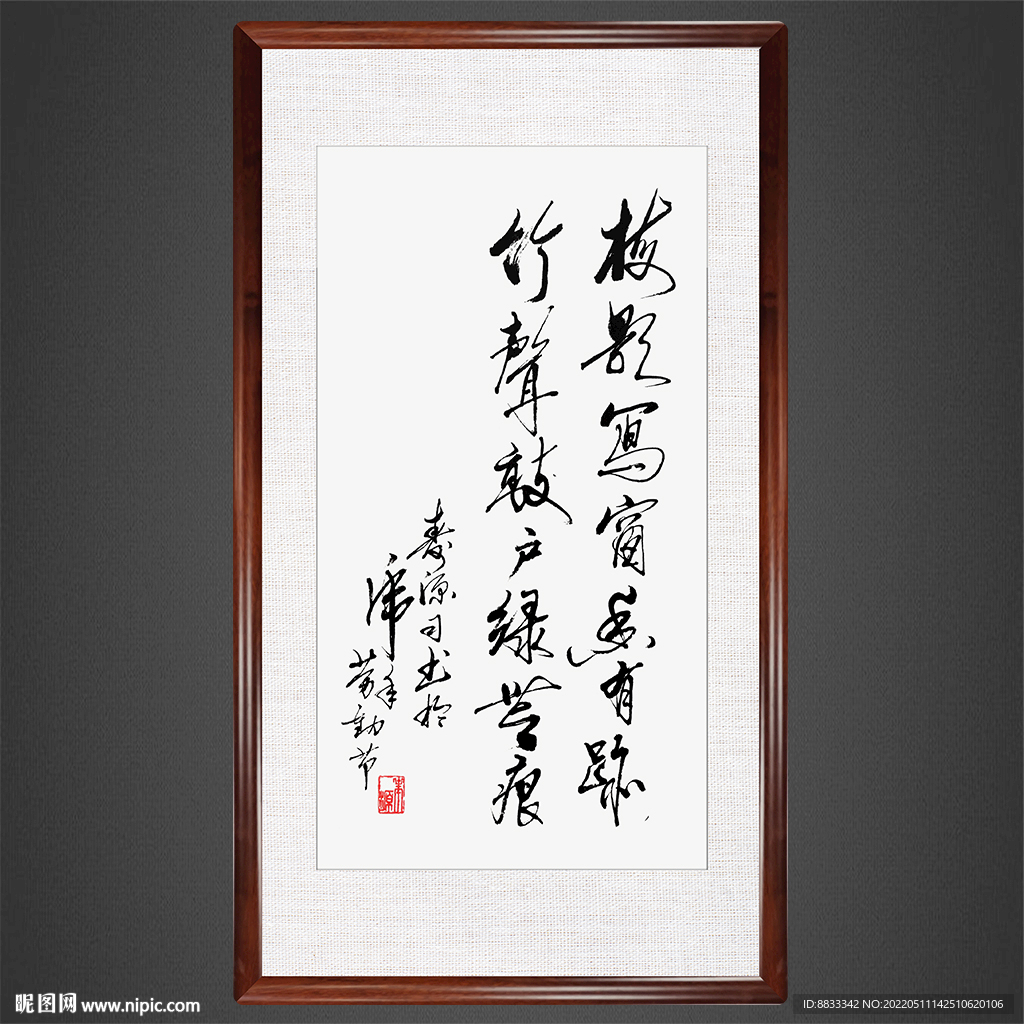 梅影寫窗香有跡
竹聲敲户緑無痕
源习书於
虎年
劳動节
昵图网 www.nipic.com
ID:8833342 NO:20220511142510620106